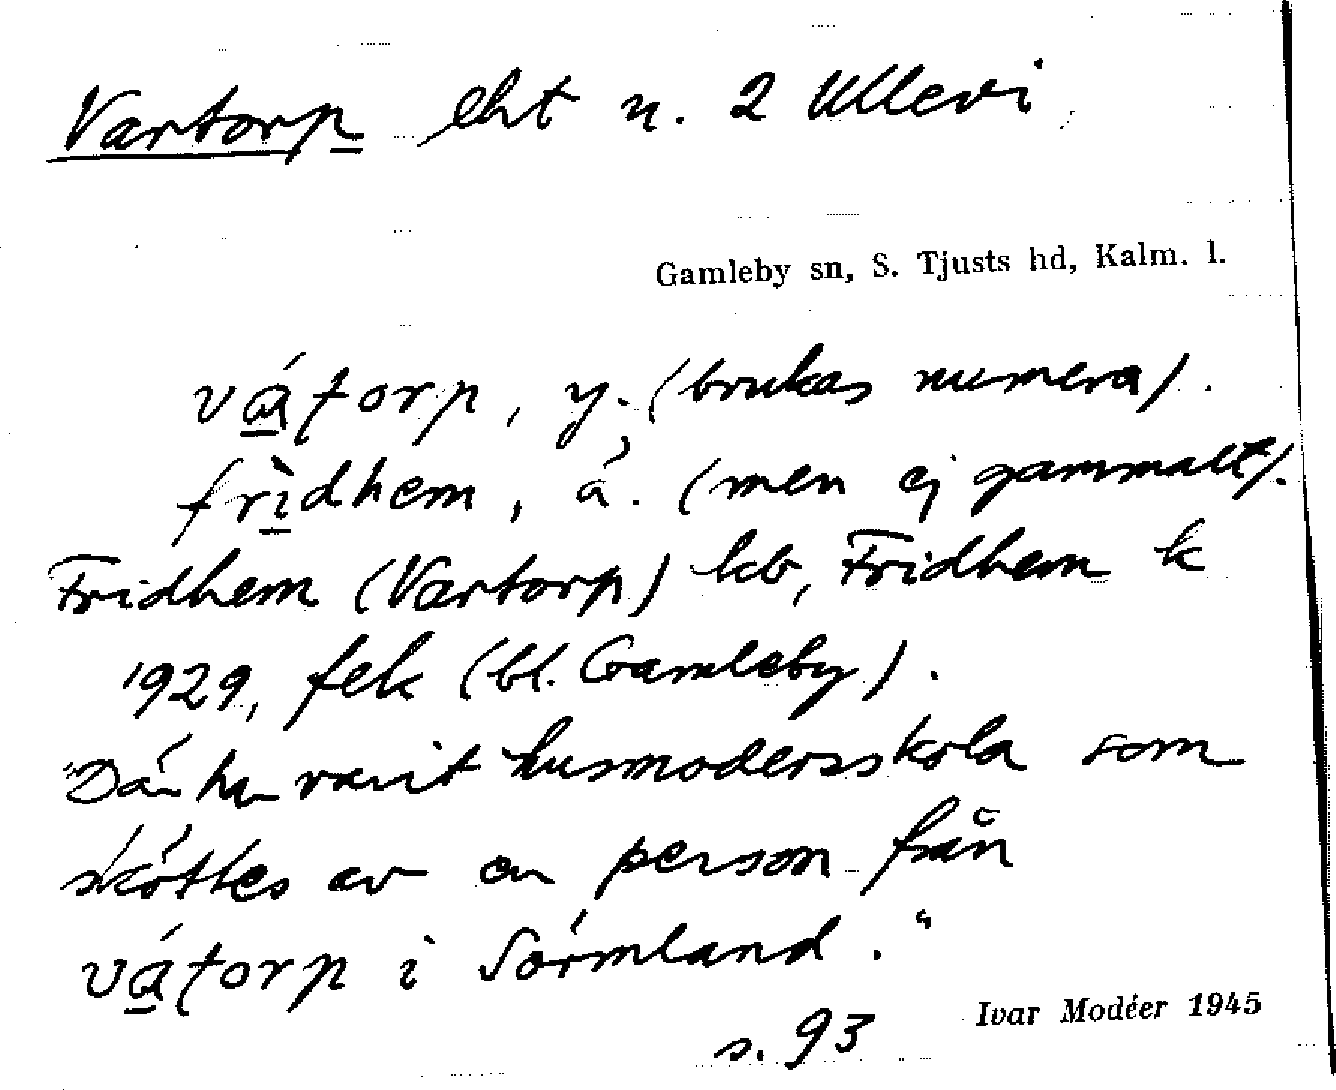 Vartorp lht u. 2 Ullevi
Gamleby sn, S. Tjusts hd, Kalm. l.
vátorp, y. (brukas numera).
frìdhem, ä. (men ej gammalt).
Fridhem (Vartorp) kb, Fridhem k
1929, fek (bl. Gamleby).
"Där har varit husmodersskola som
sköttes av en person från
vátorp i Sörmland."
s. 93
Ivar Modéer 1945